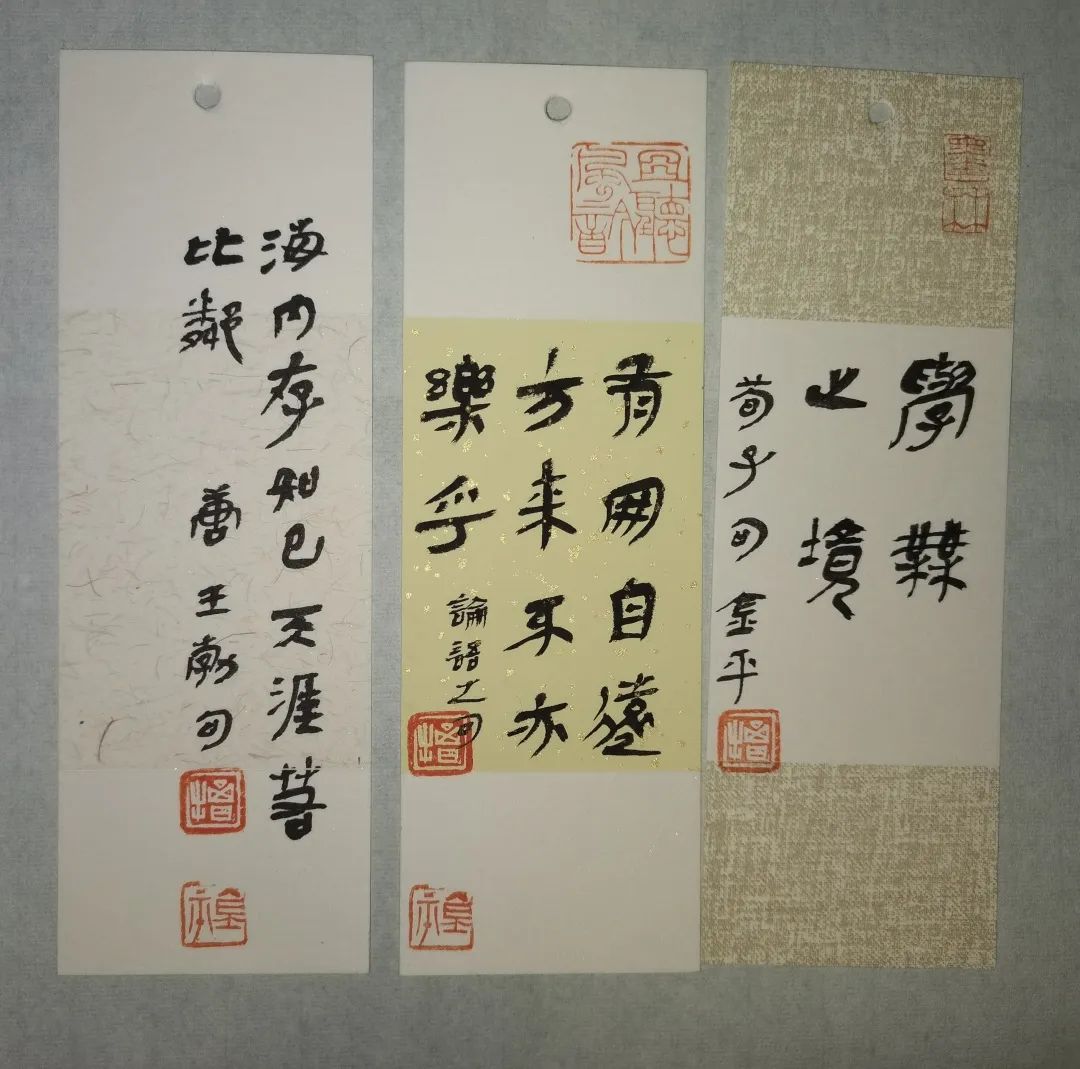 海内存知己天涯若
比鄰 唐王勃句
有朋自遠
方來不亦
樂乎 論語之句
學無
止境
荀子句金平